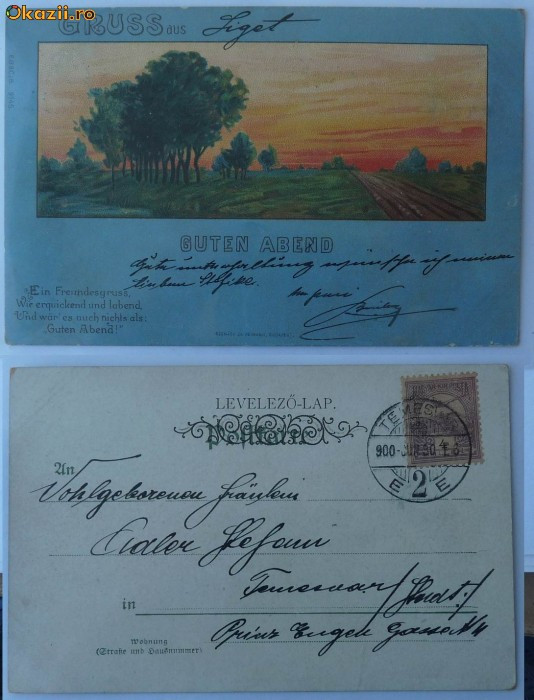 Okazii.ro
GRUSS aus Liget
GUTEN ABEND
Gute unterhaltung wünsche ich meiner
lieben
Ein Freundesgruss,
Wie erquickend und labend,
Und wär' es auch nichts als:
„Guten Abend!"
LEVELEZŐ-LAP.
Postkarte
TEMESVÁR
900
2
E E
An
Wohlgeborenen Fräulein
Adler Stefani
Temesvar /Stadt/
in
Prinz Eugen Gasse
Wohnung
(Straße und Hausnummer)